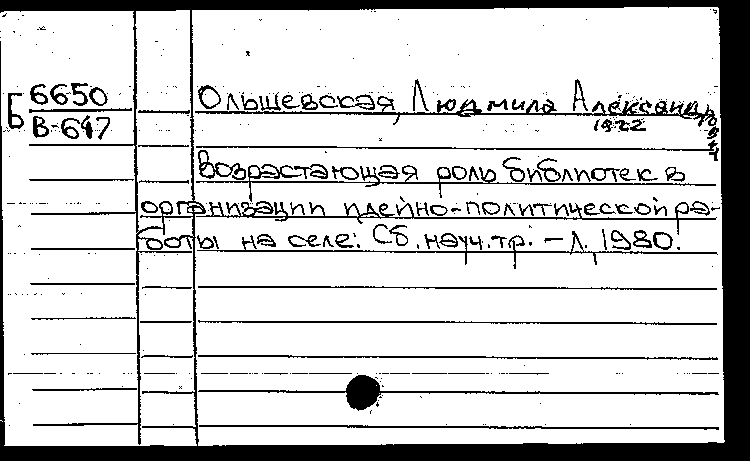 Б 6650
В-647
Ольшевская, Людмила Александровна
1922
Возрастающая роль библиотек в
организации идейно-политической ра-
боты на селе: Сб. науч. тр. – Л., 1980.